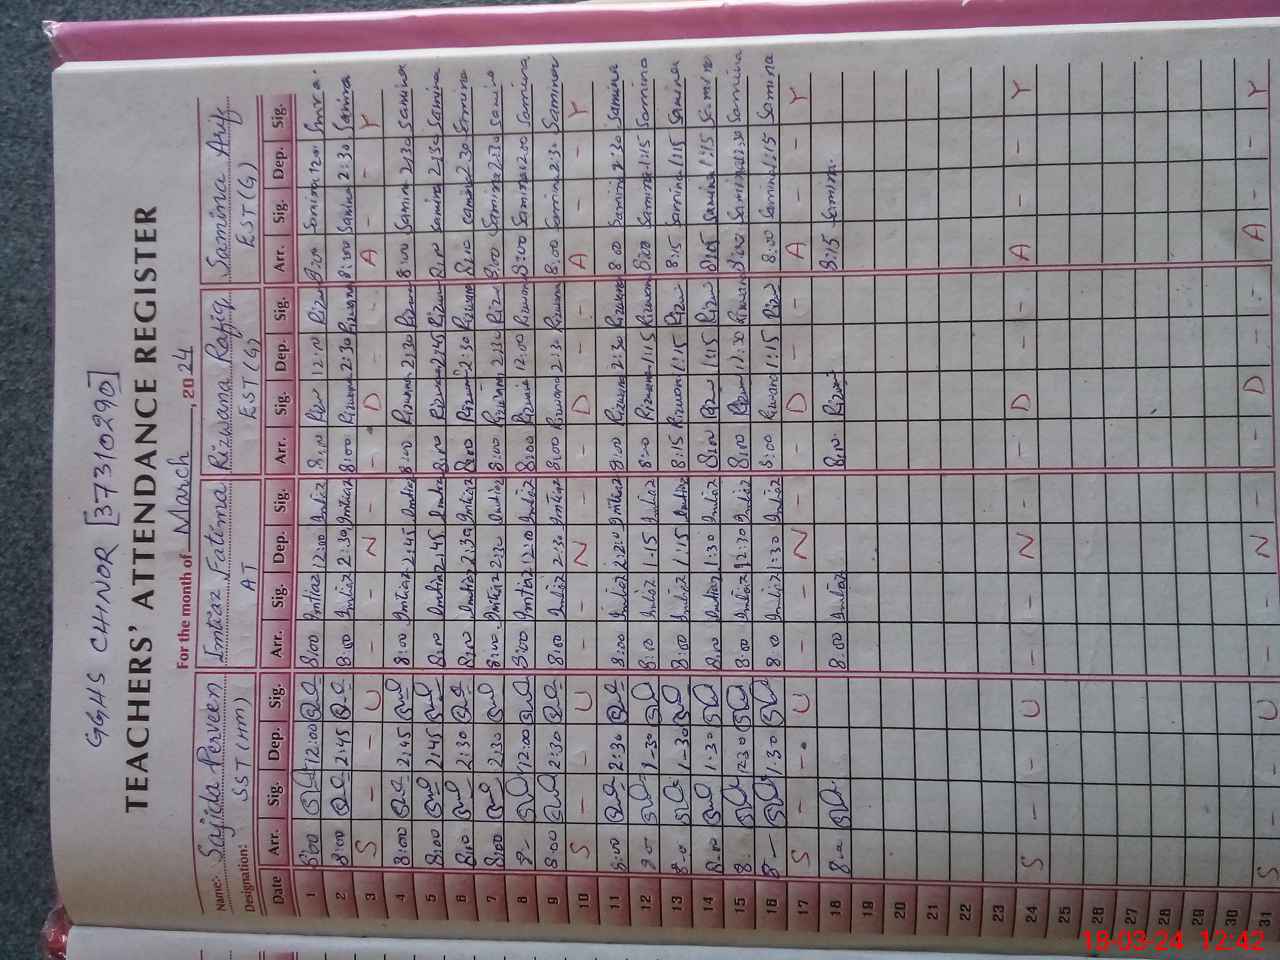 GGHS CHNOR [37310290]
TEACHERS' ATTENDANCE REGISTER
For the month of March, 2024
Name: Sajida Perveen Imtiaz Fatima Rizwana Rafiq Samina Arif
Designation: SST (HM) AT EST(G) EST(G)
Date Arr. Sig. Dep. Sig. Arr. Sig. Dep. Sig. Arr. Sig. Dep. Sig. Arr. Sig. Dep. Sig.
1 8:00 12:00 8:00 Imtiaz 12:00 Imtiaz 8:00 Riz 12:00 Riz 8:00 Samina 12:00
2 8:00 2:45 8:00 Imtiaz 2:30 Imtiaz 8:00 Rizwana 2:30 Rizwana 8:00 Samina 2:30 Samina
3 S - - U - - N - - D - - A - - Y
4 8:00 2:45 8:00 Imtiaz 2:45 Imtiaz 8:00 Rizwana 2:30 Rizwana 8:00 Samina 2:30 Samina
5 8:00 2:45 8:00 Imtiaz 2:45 Imtiaz 8:00 Rizwana 2:45 Rizwana 8:00 Samina 2:30 Samina
6 8:00 2:30 8:00 Imtiaz 2:30 Imtiaz 8:00 Rizwana 2:30 Rizwana 8:00 Samina 2:30 Samina
7 8:00 2:30 8:00 Imtiaz 2:30 Imtiaz 8:00 Rizwana 2:30 Riz 8:00 Samina 2:30 Samina
8 8- 12:00 8:00 Imtiaz 12:00 Imtiaz 8:00 Rizwana 12:00 Rizwana 8:00 Samina 12:00 Samina
9 8:00 2:30 8:00 Imtiaz 2:30 Imtiaz 8:00 Rizwana 2:30 Rizwana 8:00 Samina 2:30 Samina
10 S - - U - - N - - D - - A - - Y
11 8:00 2:30 8:00 Imtiaz Imtiaz 8:00 Rizwana 2:30 Rizwana 8:00 Samina 2:30 Samina
12 1-30 8:00 Imtiaz 1:15 Imtiaz 8:00 Rizwana 1:15 Rizwana 8:00 Samina 1:15 Samina
13 1-30 8:00 Imtiaz 1:15 Imtiaz 8:15 Rizwana 1:15 Riz 8:15 Samina 1:15 Samina
14 8:00 1:30 8:00 Imtiaz 1:30 Imtiaz 8:00 Riz 1:15 Riz 8:05 Samina 1:15 Samina
15 8: 12:30 8:00 Imtiaz 12:30 Imtiaz 8:00 Riz 12:30 Rizwana 8:00 Samina 12:30 Samina
16 8- 1:30 8:00 Imtiaz 1:30 Imtiaz 8:00 Rizwana 1:15 Riz 8:00 Samina 1:15 Samina
17 S - - U - - N - - D - - A - - Y
18 8:00 8:00 Imtiaz 8:00 Rizwana 8:15 Samina
19
20
21
22
23
24 S - - U - - N - - D - - A - - Y
25
26
27
28
29
30
31 S - - U - - N - - D - - A - - Y
18-03-24 12:42